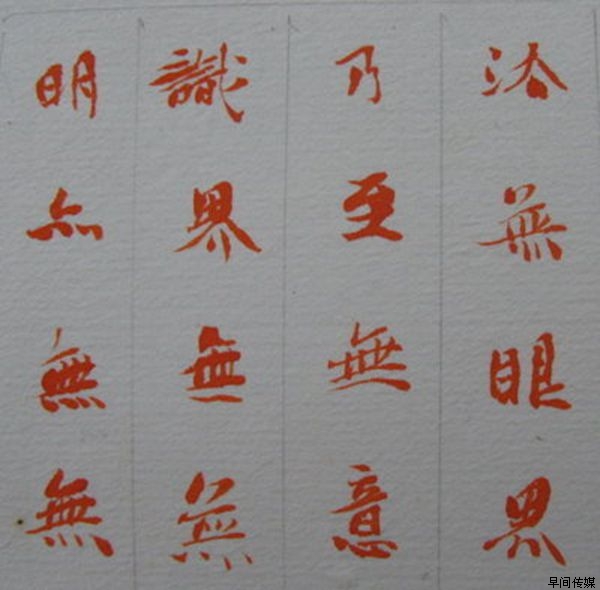 法無眼界
乃至無意
識界無無
明亦無無
早间传媒